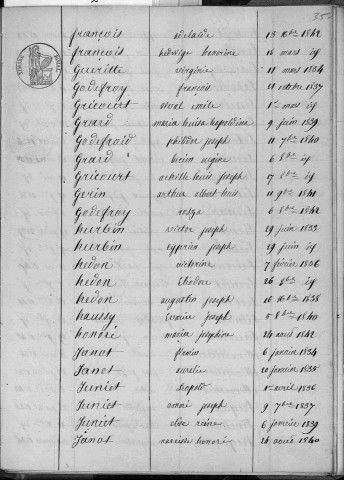 35
françois adelaide 15 xbre 1842
françois hedwige honorine 16 mars id
Gueritte virginie 11 mars 1834
Godefroy françois 21 octobre 1837
Gricourt emile 1er mars id
Grard maria louise léopoldine 9 juin 1839
Godefroid philidor joseph 11 7bre 1840
Grard régine 6 8bre id
Gricourt achille louis joseph 17 8bre id
Gerin arthur albert louis 11 9bre 1841
Godefroy 6 8bre 1842
hurbin victor joseph 29 juin 1833
hurbin cyprien joseph 29 juin id
hedon victorine 7 février 1836
hedon Eliodore 26 8bre id
hedon augustin joseph 16 1838
haussy joseph 5 8bre 1840
honoré maria joséphine 24 août 1842
Janot firmin 6 janvier 1834
Janot aurelie 20 janvier 1835
Juniet léopold 1er avril 1836
Juniet joseph 9 7bre 1837
Juniet elise reine 6 février 1839
Janot narcisse honoré 26 août 1840